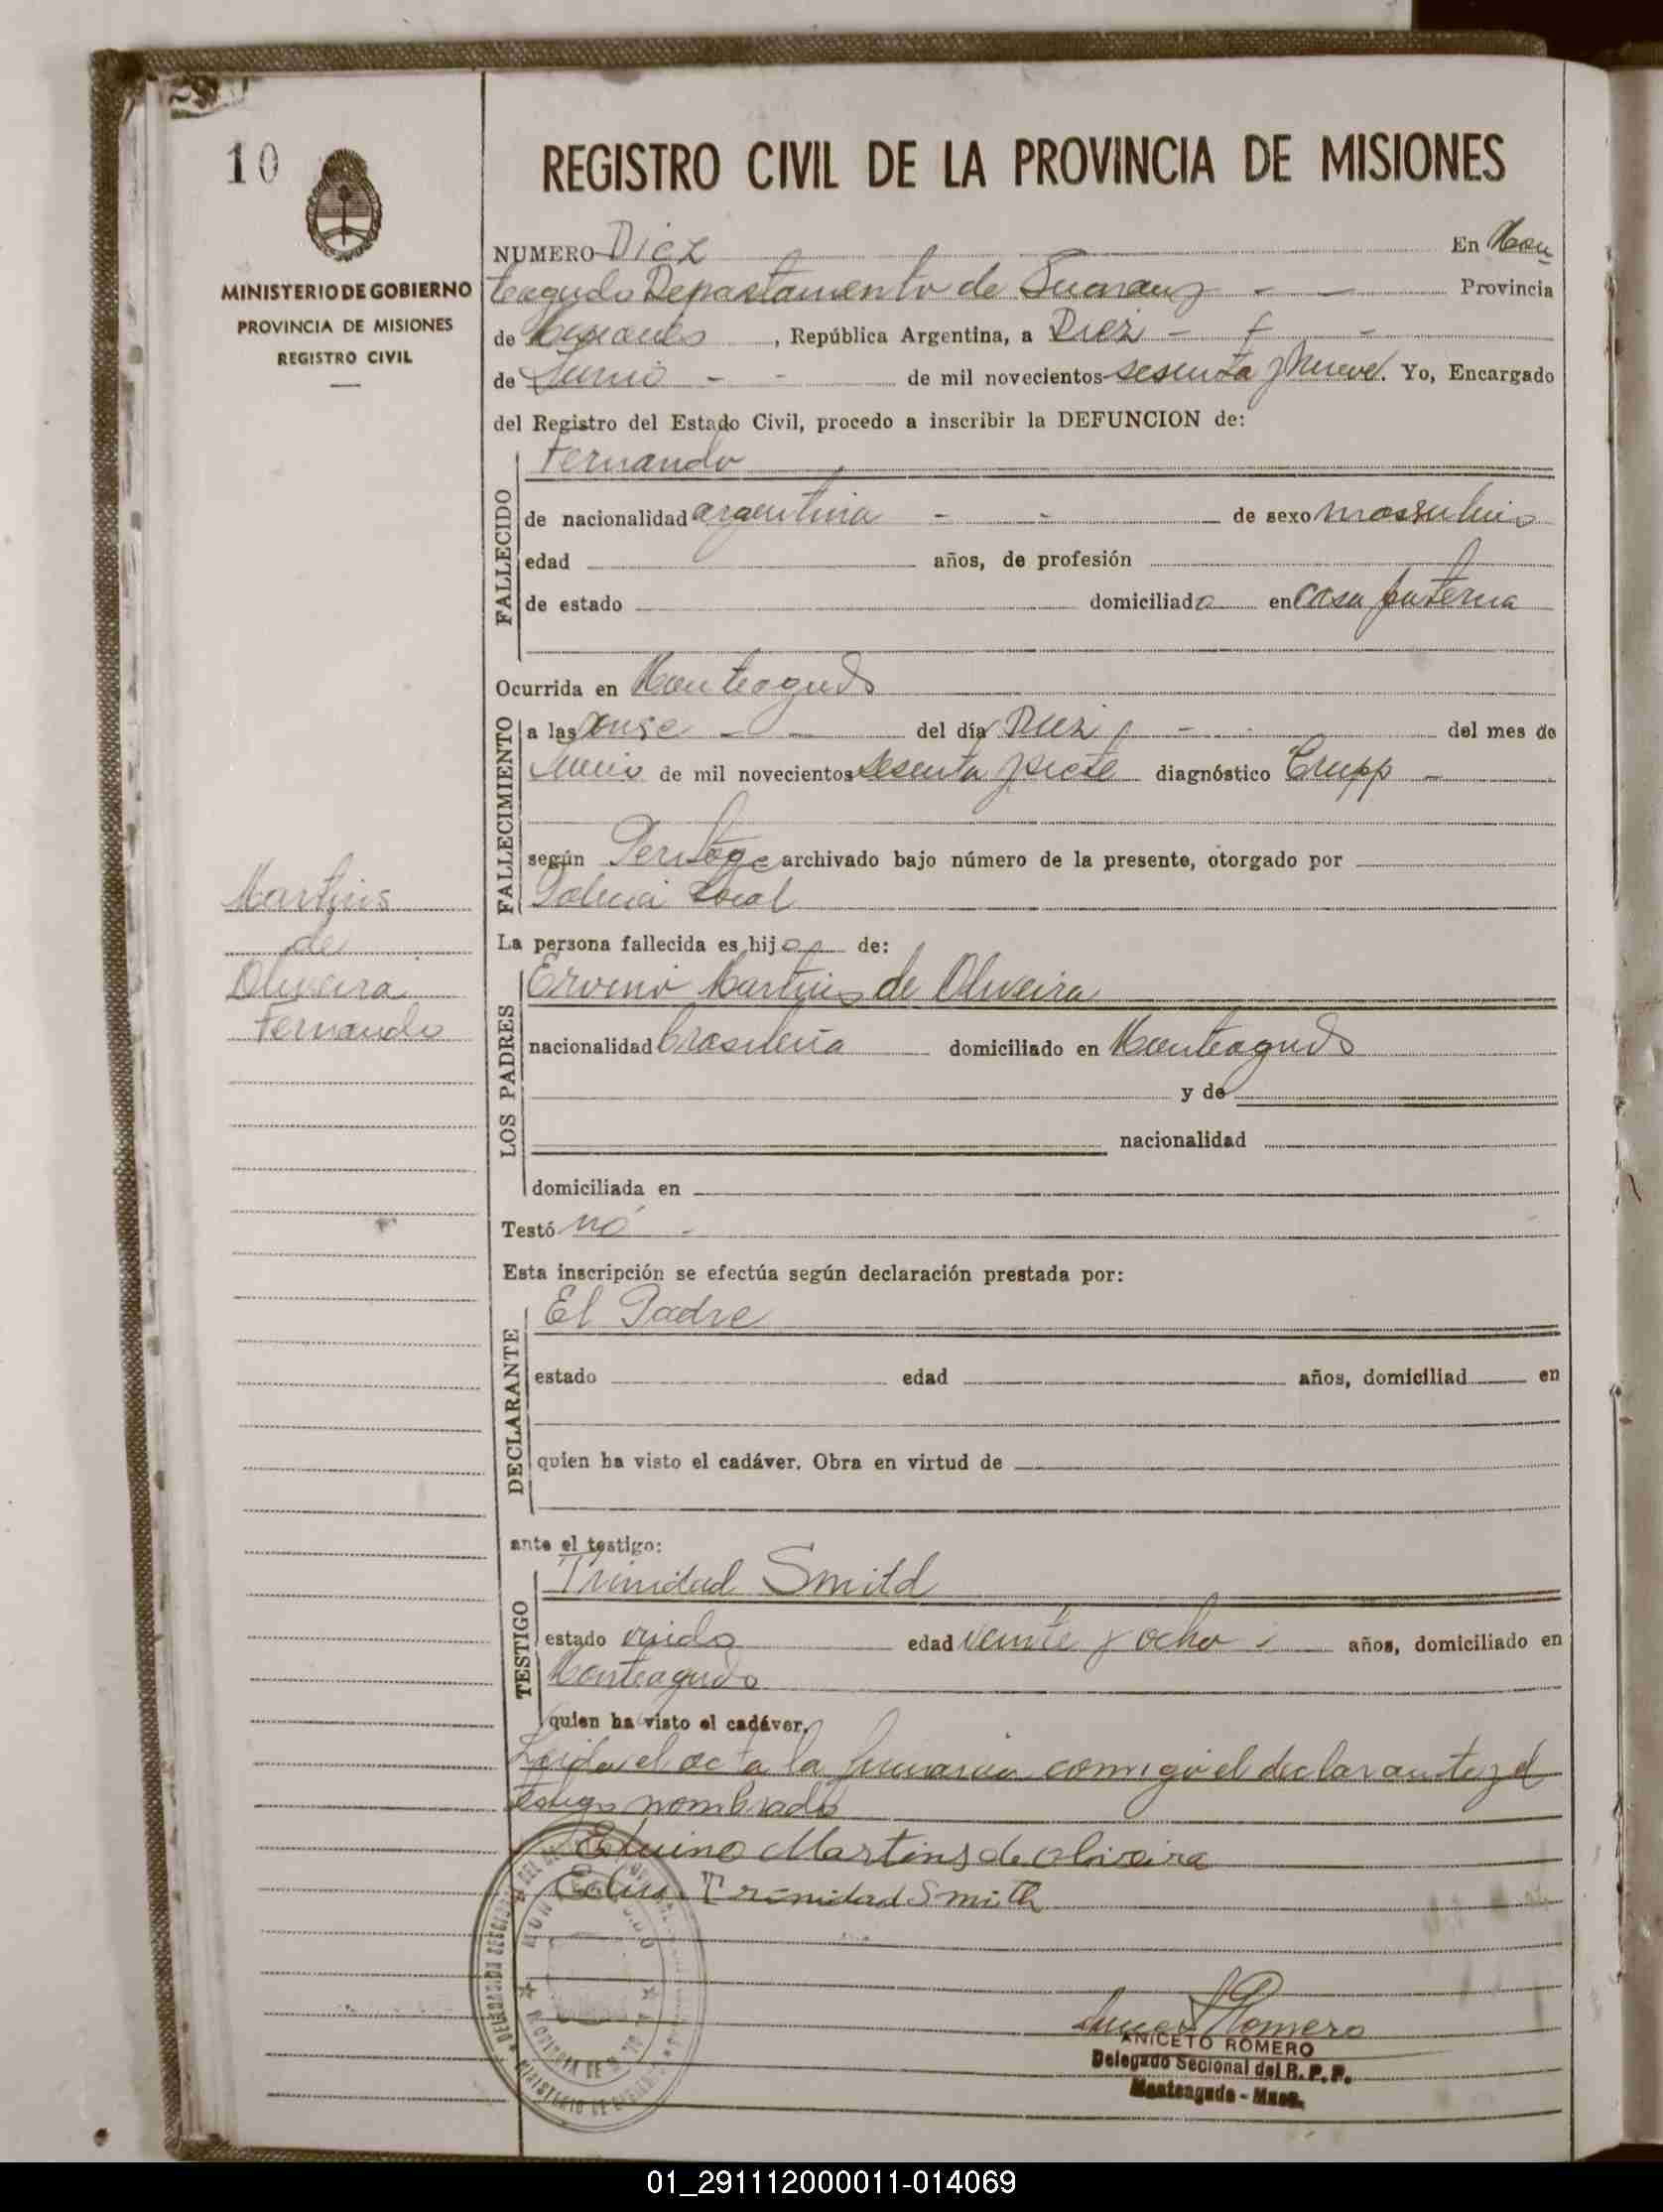 10
MINISTERIO DE GOBIERNO
PROVINCIA DE MISIONES
REGISTRO CIVIL
REGISTRO CIVIL DE LA PROVINCIA DE MISIONES
NUMERO Diez En Mon
teagudo Departamento de Guarany Provincia
de Misiones, República Argentina, a Diez
de Junio de mil novecientos sesenta y nueve. Yo, Encargado
del Registro del Estado Civil, procedo a inscribir la DEFUNCION de:
FALLECIDO
Fernando
de nacionalidad argentina de sexo masculino
edad años, de profesión
de estado domiciliado en casa paterna
Ocurrida en Monteagudo
FALLECIMIENTO
a las onse del día Diez del mes de
Junio de mil novecientos sesenta y siete diagnóstico Crupp
según Peritage archivado bajo número de la presente, otorgado por
Policia Local
Martins
de
Oliveira
Fernando
La persona fallecida es hijo de:
LOS PADRES
Martins de Oliveira
nacionalidad brasileña domiciliado en Monteagudo
y de
nacionalidad
domiciliada en
Testó no
Esta inscripción se efectúa según declaración prestada por:
DECLARANTE
El Padre
estado edad años, domiciliad en
quien ha visto el cadáver. Obra en virtud de
ante el testigo:
TESTIGO
Trinidad Smitd
estado viudo edad veinte y ocho años, domiciliado en
Monteagudo
quien ha visto el cadáver.
Leida el acta la firmaron comigo el declarante y el
testigo nombrado
Martins de oliveira
Trinidad Smith
Romero
ANICETO ROMERO
Delegado Secional del R. P. P.
Monteagudo - Mnes.
01_291112000011-014069